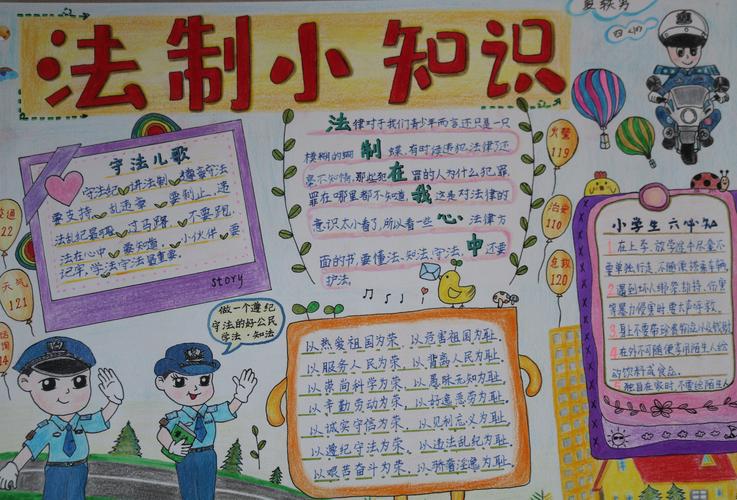 法制小知识
守法儿歌
守法纪,讲法制,遵章守法
要支持。乱违章,要制止,违
法乱纪最可耻。过马路,不要跑,
法在心中要知道。小伙伴,要
记牢,学法守法最重要。
story
法律对于我们青少年而言,还只是一只
模糊的蝴蝶,有时候违犯法律了还
毫不知情,那些犯罪的人为什么犯罪,
罪在哪里都不知道,这是对法律的
意识太小看了,所以看一些法律方
面的书,要懂法、知法、守法,还要
护法。
制
在
我
心
中
火警
119
治安
110
急救
120
交通
122
天气
121
14
做一个遵纪
守法的好公民
学法·知法
以热爱祖国为荣,以危害祖国为耻。
以服务人民为荣,以背离人民为耻。
以崇尚科学为荣,以愚昧无知为耻。
以辛勤劳动为荣,以好逸恶劳为耻。
以诚实守信为荣,以见利忘义为耻。
以遵纪守法为荣,以违法乱纪为耻。
以艰苦奋斗为荣,以骄奢淫逸为耻。
小学生六个知
1.在上学、放学途中尽量不
要单独行走,不随便搭乘车辆。
2.遇到坏人绑架、劫持、伤害
等暴力侵害时要大声呼救。
3.身上不要带珍贵物品以及钱财
4.在外不可随便享用陌生人给
的饮料或食品。
5.独自在家时,不要给陌生人